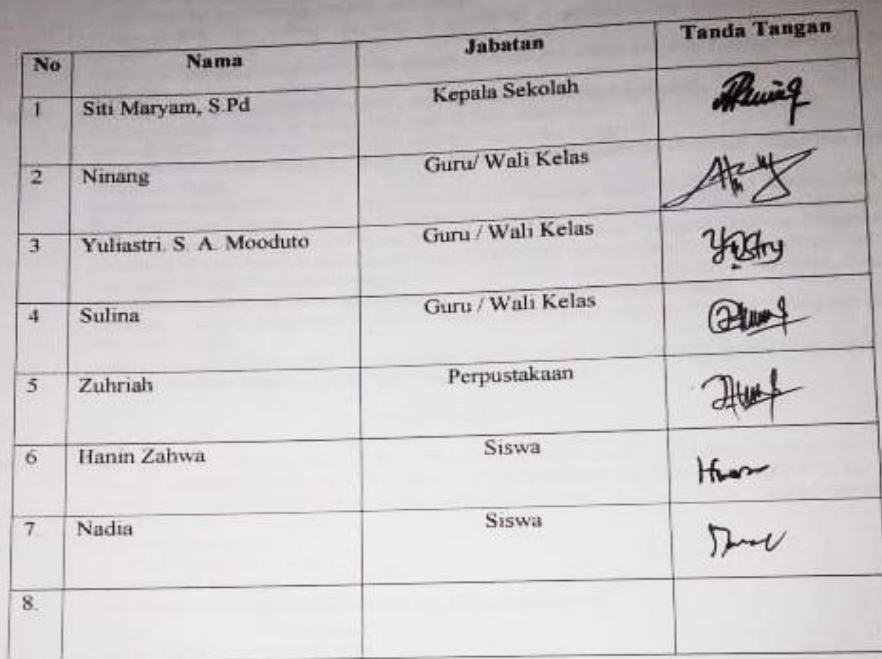 No Nama Jabatan Tanda Tangan
1 Siti Maryam, S.Pd Kepala Sekolah
2 Ninang Guru/ Wali Kelas
3 Yuliastri. S. A. Mooduto Guru / Wali Kelas
4 Sulina Guru / Wali Kelas
5 Zuhriah Perpustakaan
6 Hanin Zahwa Siswa
7. Nadia Siswa
8.